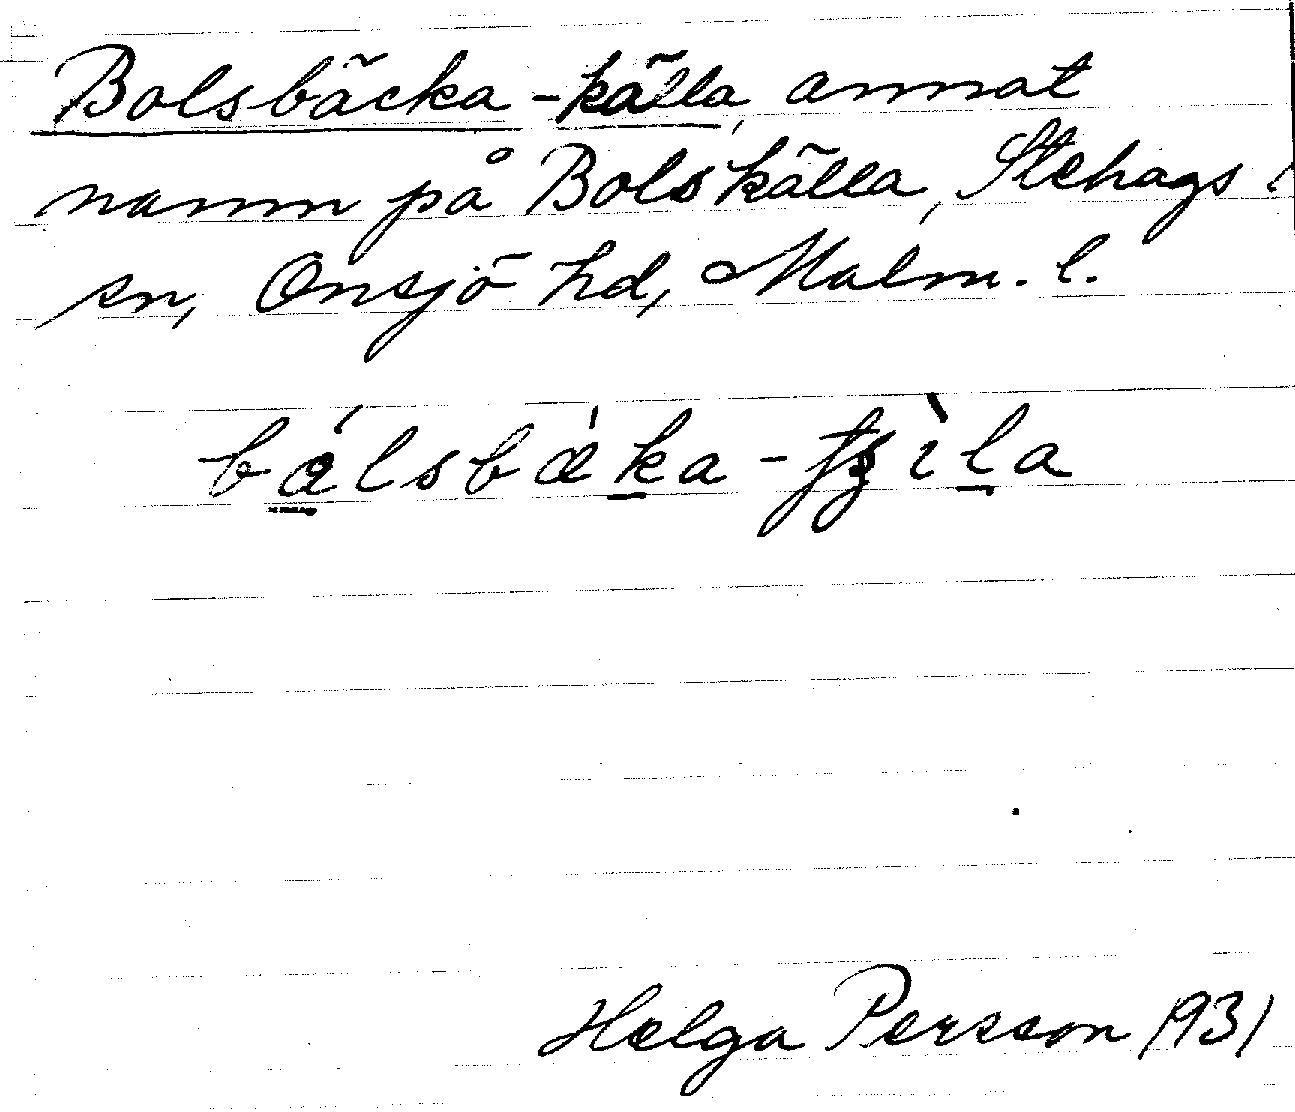 Bolsbäcka-källa, annat
namn på Bolskälla, Stehags
sn, Onsjö hd, Malm. l.
bálsbæ̀ka-tʃʒìla
Helga Persson 1931